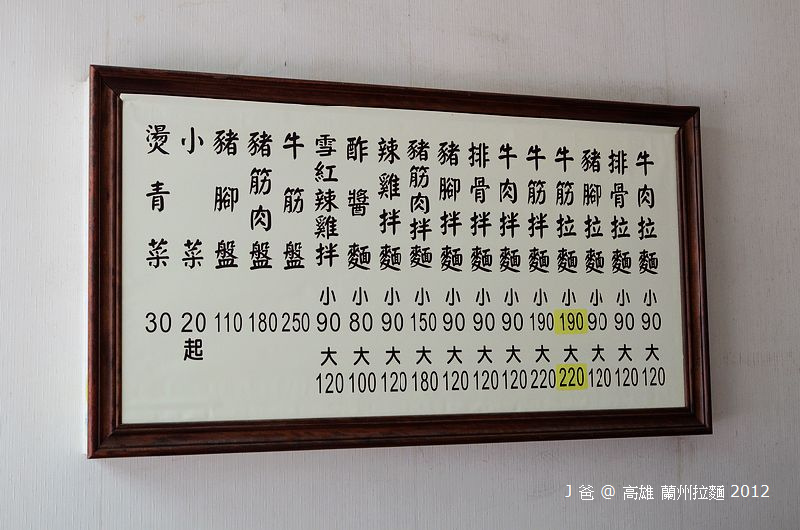 牛肉拉麵 小 90 大 120
排骨拉麵 小 90 大 120
豬腳拉麵 小 90 大 120
牛筋拉麵 小 190 大 220
牛筋拌麵 小 190 大 220
牛肉拌麵 小 90 大 120
排骨拌麵 小 90 大 120
豬腳拌麵 小 90 大 120
豬筋肉拌麵 小 150 大 180
辣雞拌麵 小 90 大 120
酢醬麵 小 80 大 100
雪紅辣雞拌 小 90 大 120
牛筋盤 250
豬筋肉盤 180
豬腳盤 110
小菜 20起
燙青菜 30
J 爸 @ 高雄 蘭州拉麵 2012